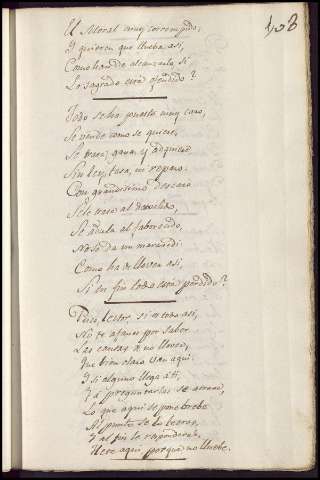 108
El Moral muy corrompido;
Y quieren que llueba asi,
Como han de alcanzarlo si
Lo sagrado está ofendido?
Todo se ha puesto muy caro,
Se vende como se quiere,
Se trata, gana, y adquiere
Sin ley, tasa, ni reparo.
Con grandissimo descaro
Se le trata al desvalido,
Se adula al faborecido,
No se da un maravedi
Como ha de llover asi,
Si en fin todo está perdido?
Pues, lector, si es todo asi,
No te afanes por saber
Las causas de no llover,
Que bien claro van aqui.
Y si alguno llega a ti,
Y a preguntarlas se atreve,
Lo que aqui se pone brebe
Al punto se lo leeras,
Y al fin le responderas,
Ve aqui porque no lluebe.